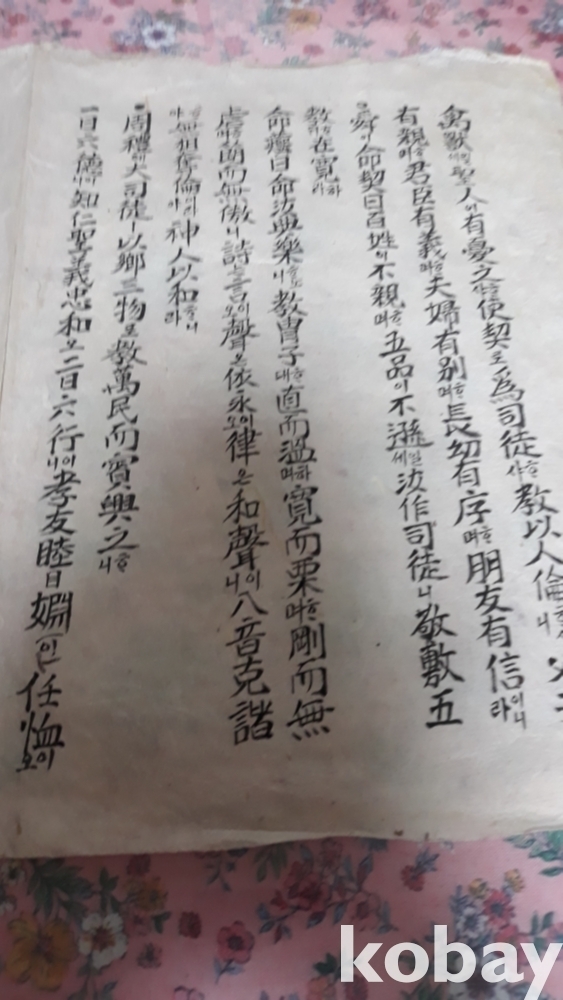 禽獸聖人이有憂之使契로爲司徒사敎以人倫니父子
有親며君臣有義며夫婦有別며長幼有序며朋友有信이니라
○舜이命契曰百姓이不親며五品이不遜세일汝作司徒니敬敷五
敎在寬하라
命夔曰命汝典樂노니敎胄子대直而溫며寬而栗며剛而無
虐며簡而無傲니詩言오聲은依永이오律은和聲이니八音克諧
야無相奪倫야神人以和니라
周禮大司徒ㅣ以鄕三物로敎萬民而賓興之니
一曰六德이니知仁聖義忠和오二曰六行이니孝友睦婣任恤이오
kobay